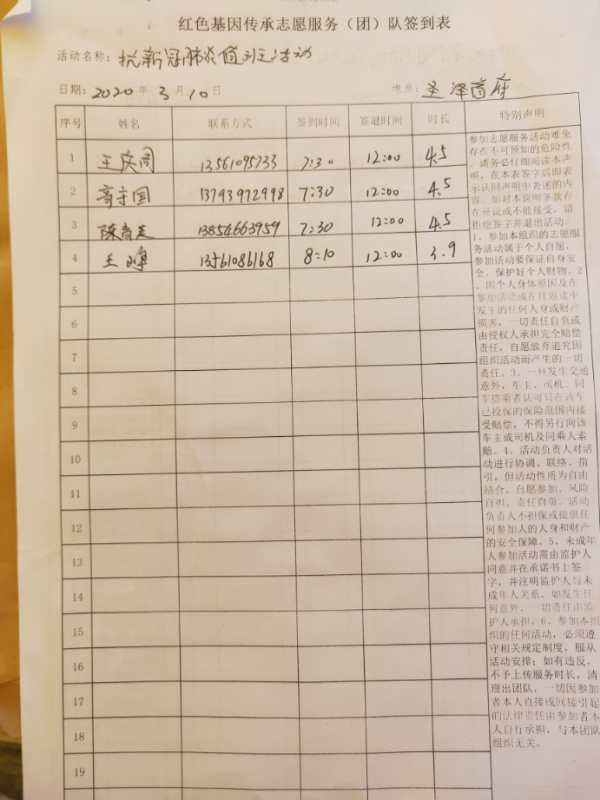 红色基因传承志愿服务（团）队签到表
活动名称：抗新冠肺炎值班活动
日期：2020年3月10日 地点：圣泽首府
序号 姓名 联系方式 签到时间 签退时间 时长 特别声明
1 王庆同 13561095733 7:30 12:00 4.5
2 高守国 13793972998 7:30 12:00 4.5
3 陈 13854663959 7:30 12:00 4.5
4 王 13561086168 8:10 12:00 3.9
5
6
7
8
9
10
11
12
13
14
15
16
17
18
19
参加志愿服务活动难免
存在不可预知的危险性
，请务必仔细阅读本声
明，在本表签字后即表
示认同声明中表述的内
容。如对本说明条款存
在异议或不能接受，请
拒绝签字并退出活动。
1、参加本组织的志愿服
务活动属于个人自愿，
参加活动要保证自身安
全，保护好个人财物。2
、因个人身体原因及在
参加活动或在往返途中
发生的任何人身或财产
损害，一切责任自负或
由侵权人承担完全赔偿
责任，自愿放弃追究因
组织活动而产生的一切
责任。3、一旦发生交通
意外，车主、司机、同
车搭乘者认可只在该车
已投保的保险范围内接
受赔偿，不得另行向该
车主或司机及同乘人索
赔。4、活动负责人对活
动进行协调、联络、指
引，但活动性质为自由
结合、自愿参加、风险
自担、责任自负。活动
负责人不担保或提供任
何参加人的人身和财产
的安全保障。5、未成年
人参加活动需由监护人
同意并在承诺书上签
字，并注明监护人与未
成年人关系。如发生任
何意外，一切责任由监
护人承担。6、参加本组
织的任何活动，必须遵
守相关规定制度，服从
活动安排；如有违反，
不予上传服务时长，清
理出团队，一切因参加
者本人直接或间接引起
的法律责任由参加者本
人自行承担，与本团队
组织无关。